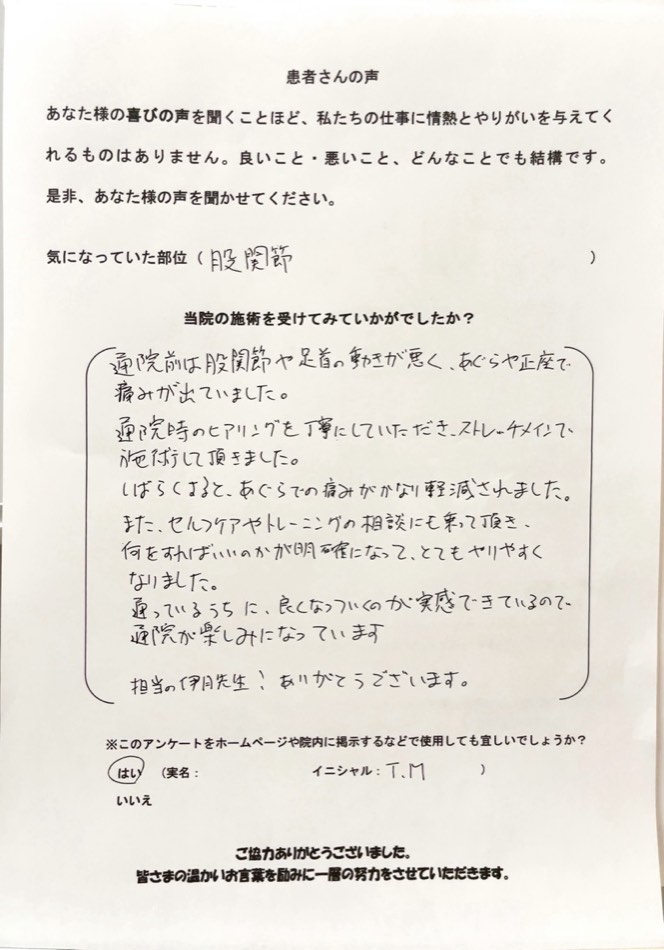 患者さんの声
あなた様の喜びの声を聞くことほど、私たちの仕事に情熱とやりがいを与えてく
れるものはありません。良いこと・悪いこと、どんなことでも結構です。
是非、あなた様の声を聞かせてください。
気になっていた部位（股関節　）
当院の施術を受けてみていかがでしたか？
通院前は股関節や足首の動きが悪く、あぐらや正座で
痛みが出ていました。
通院時のヒアリングを丁寧にしていただき、ストレッチメインで
施術して頂きました。
しばらくすると、あぐらでの痛みがかなり軽減されました。
また、セルフケアやトレーニングの相談にも乗って頂き、
何をすればいいのかが明確になって、とてもやりやすく
なりました。
通っているうちに、良くなっていくのが実感できているので
通院が楽しみになっています
担当の伊月先生！ありがとうございます。
※このアンケートをホームページや院内に掲示するなどで使用しても宜しいでしょうか？
はい　（実名：　イニシャル：T.M　）
いいえ
ご協力ありがとうございました。
皆さまの温かいお言葉を励みに一層の努力をさせていただきます。